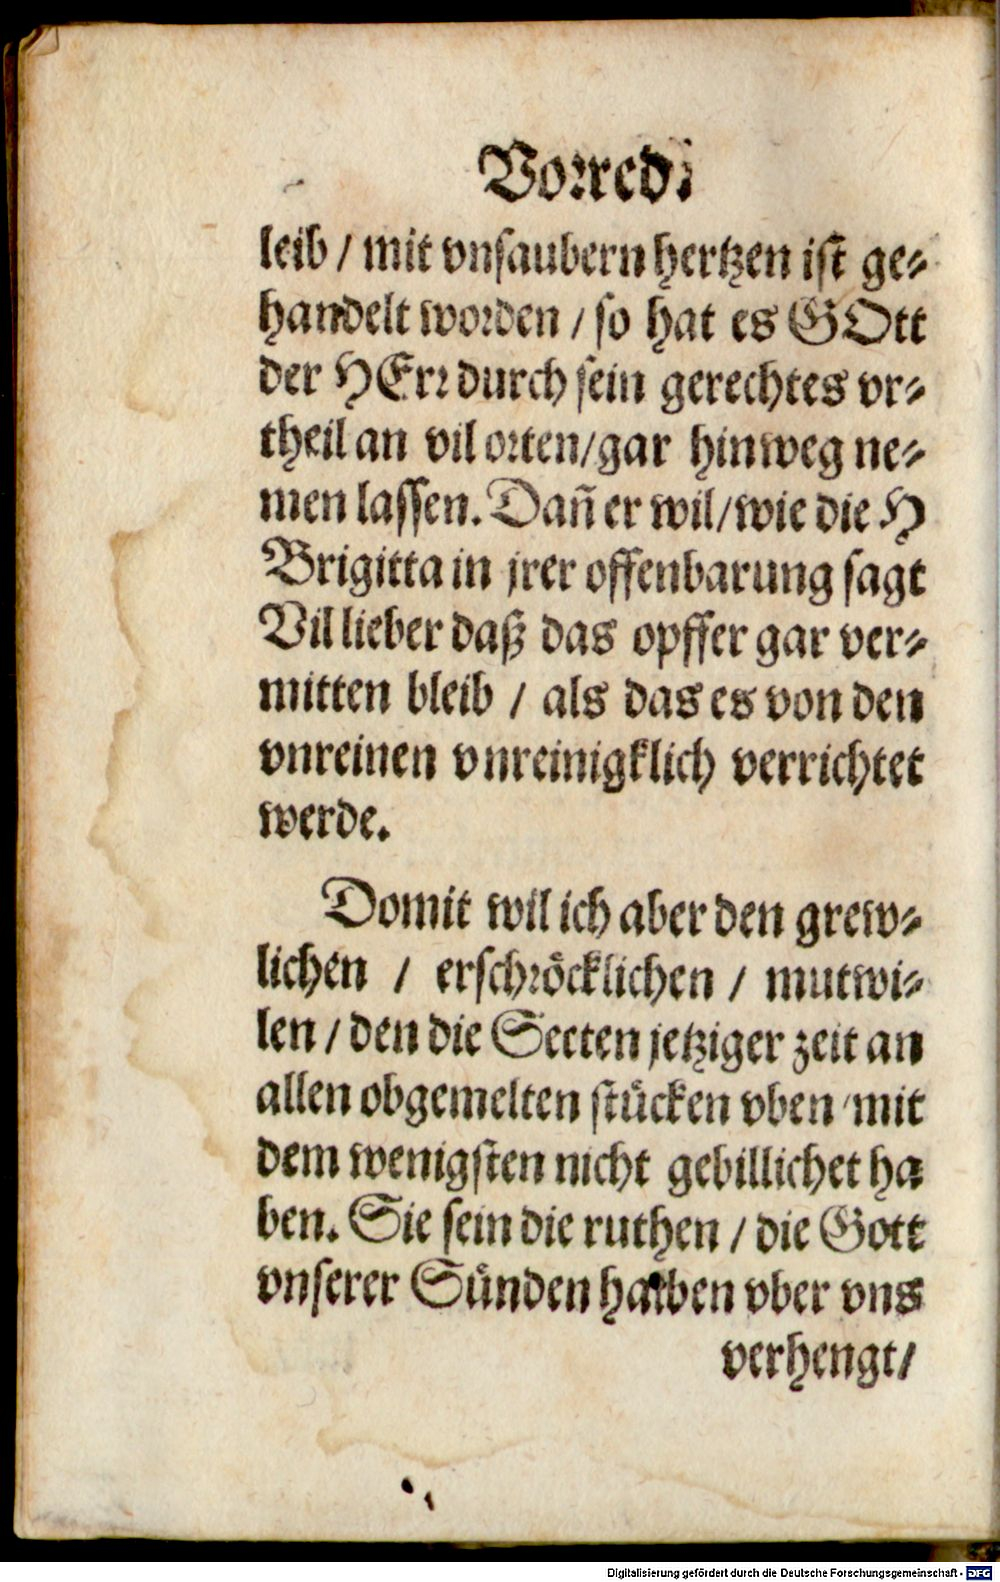 Vorred.
leib / mit vnsaubern hertzen ist ge-
handelt worden / so hat es GOtt
der HErr durch sein gerechtes vr-
theil an vil orten/gar hinweg ne-
men lassen. Dañ er wil/wie die H
Brigitta in jrer offenbarung sagt
Vil lieber daß das opffer gar ver-
mitten bleib / als das es von den
vnreinen vnreinigklich verrichtet
werde.
Domit wil ich aber den grew-
lichen / erschröcklichen / mutwi-
len / den die Secten jetziger zeit an
allen obgemelten stücken vben / mit
dem wenigsten nicht gebillichet ha
ben. Sie sein die ruthen / die Gott
vnserer Sünden halben vber vns
verhengt/
Digitalisierung gefördert durch die Deutsche Forschungsgemeinschaft - DFG